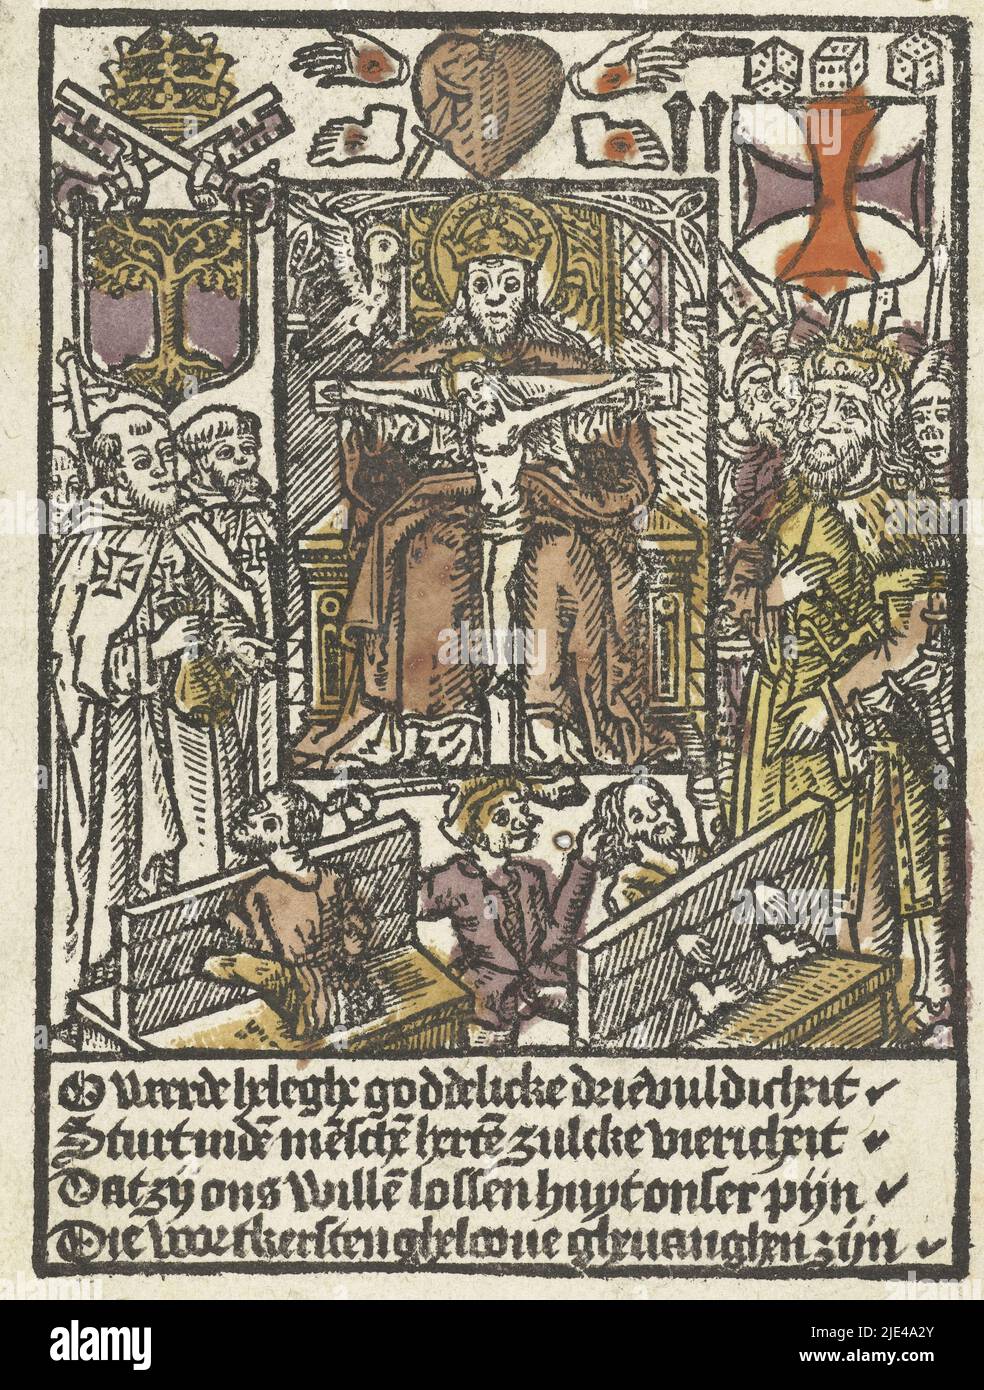 O werde heleghe goddelicke drievuldicheit
Sturt indē mēschē hertē zulcke viericheit
Dat zij ons willē lossen huyt onser pijn
Die voor tkersten ghelooue gheuanghen zijn
alamy
Image ID: 2JE4A2Y
www.alamy.com